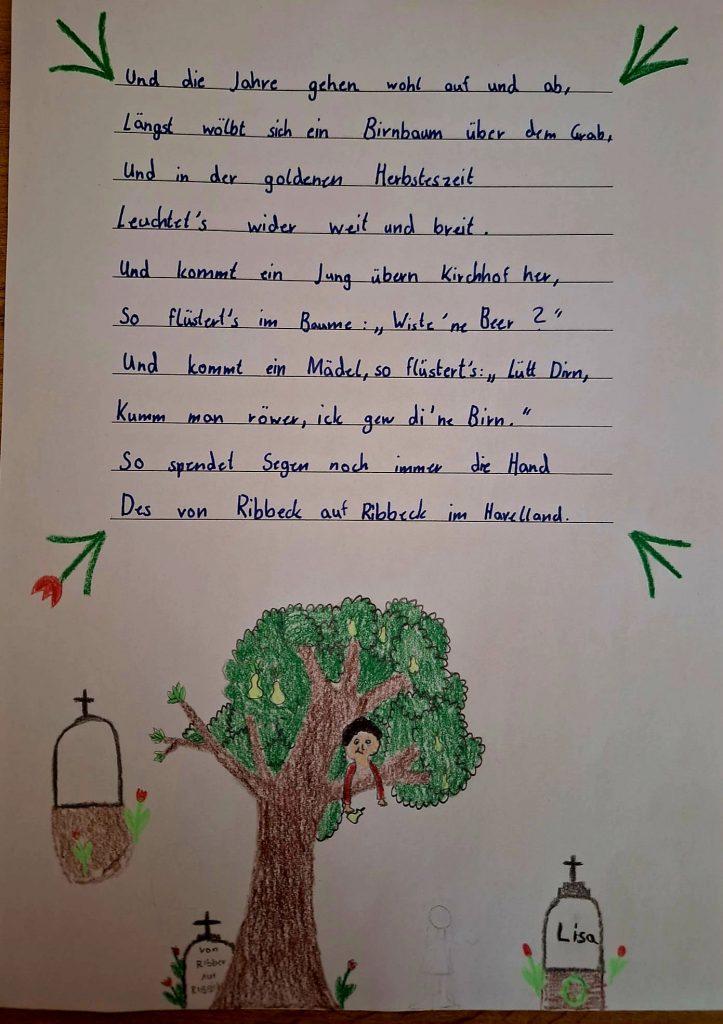 Und die Jahre gehen wohl auf und ab,
Längst wölbt sich ein Birnbaum über dem Grab,
Und in der goldenen Herbsteszeit
Leuchtet's wider weit und breit.
Und kommt ein Jung übern Kirchhof her,
So flüstert's im Baume: „Wiste 'ne Beer?"
Und kommt ein Mädel, so flüstert's: „Lütt Dirn,
Kumm man röwer, ick gew di 'ne Birn."
So spendet Segen noch immer die Hand
Des von Ribbeck auf Ribbeck im Havelland.
Lisa
von